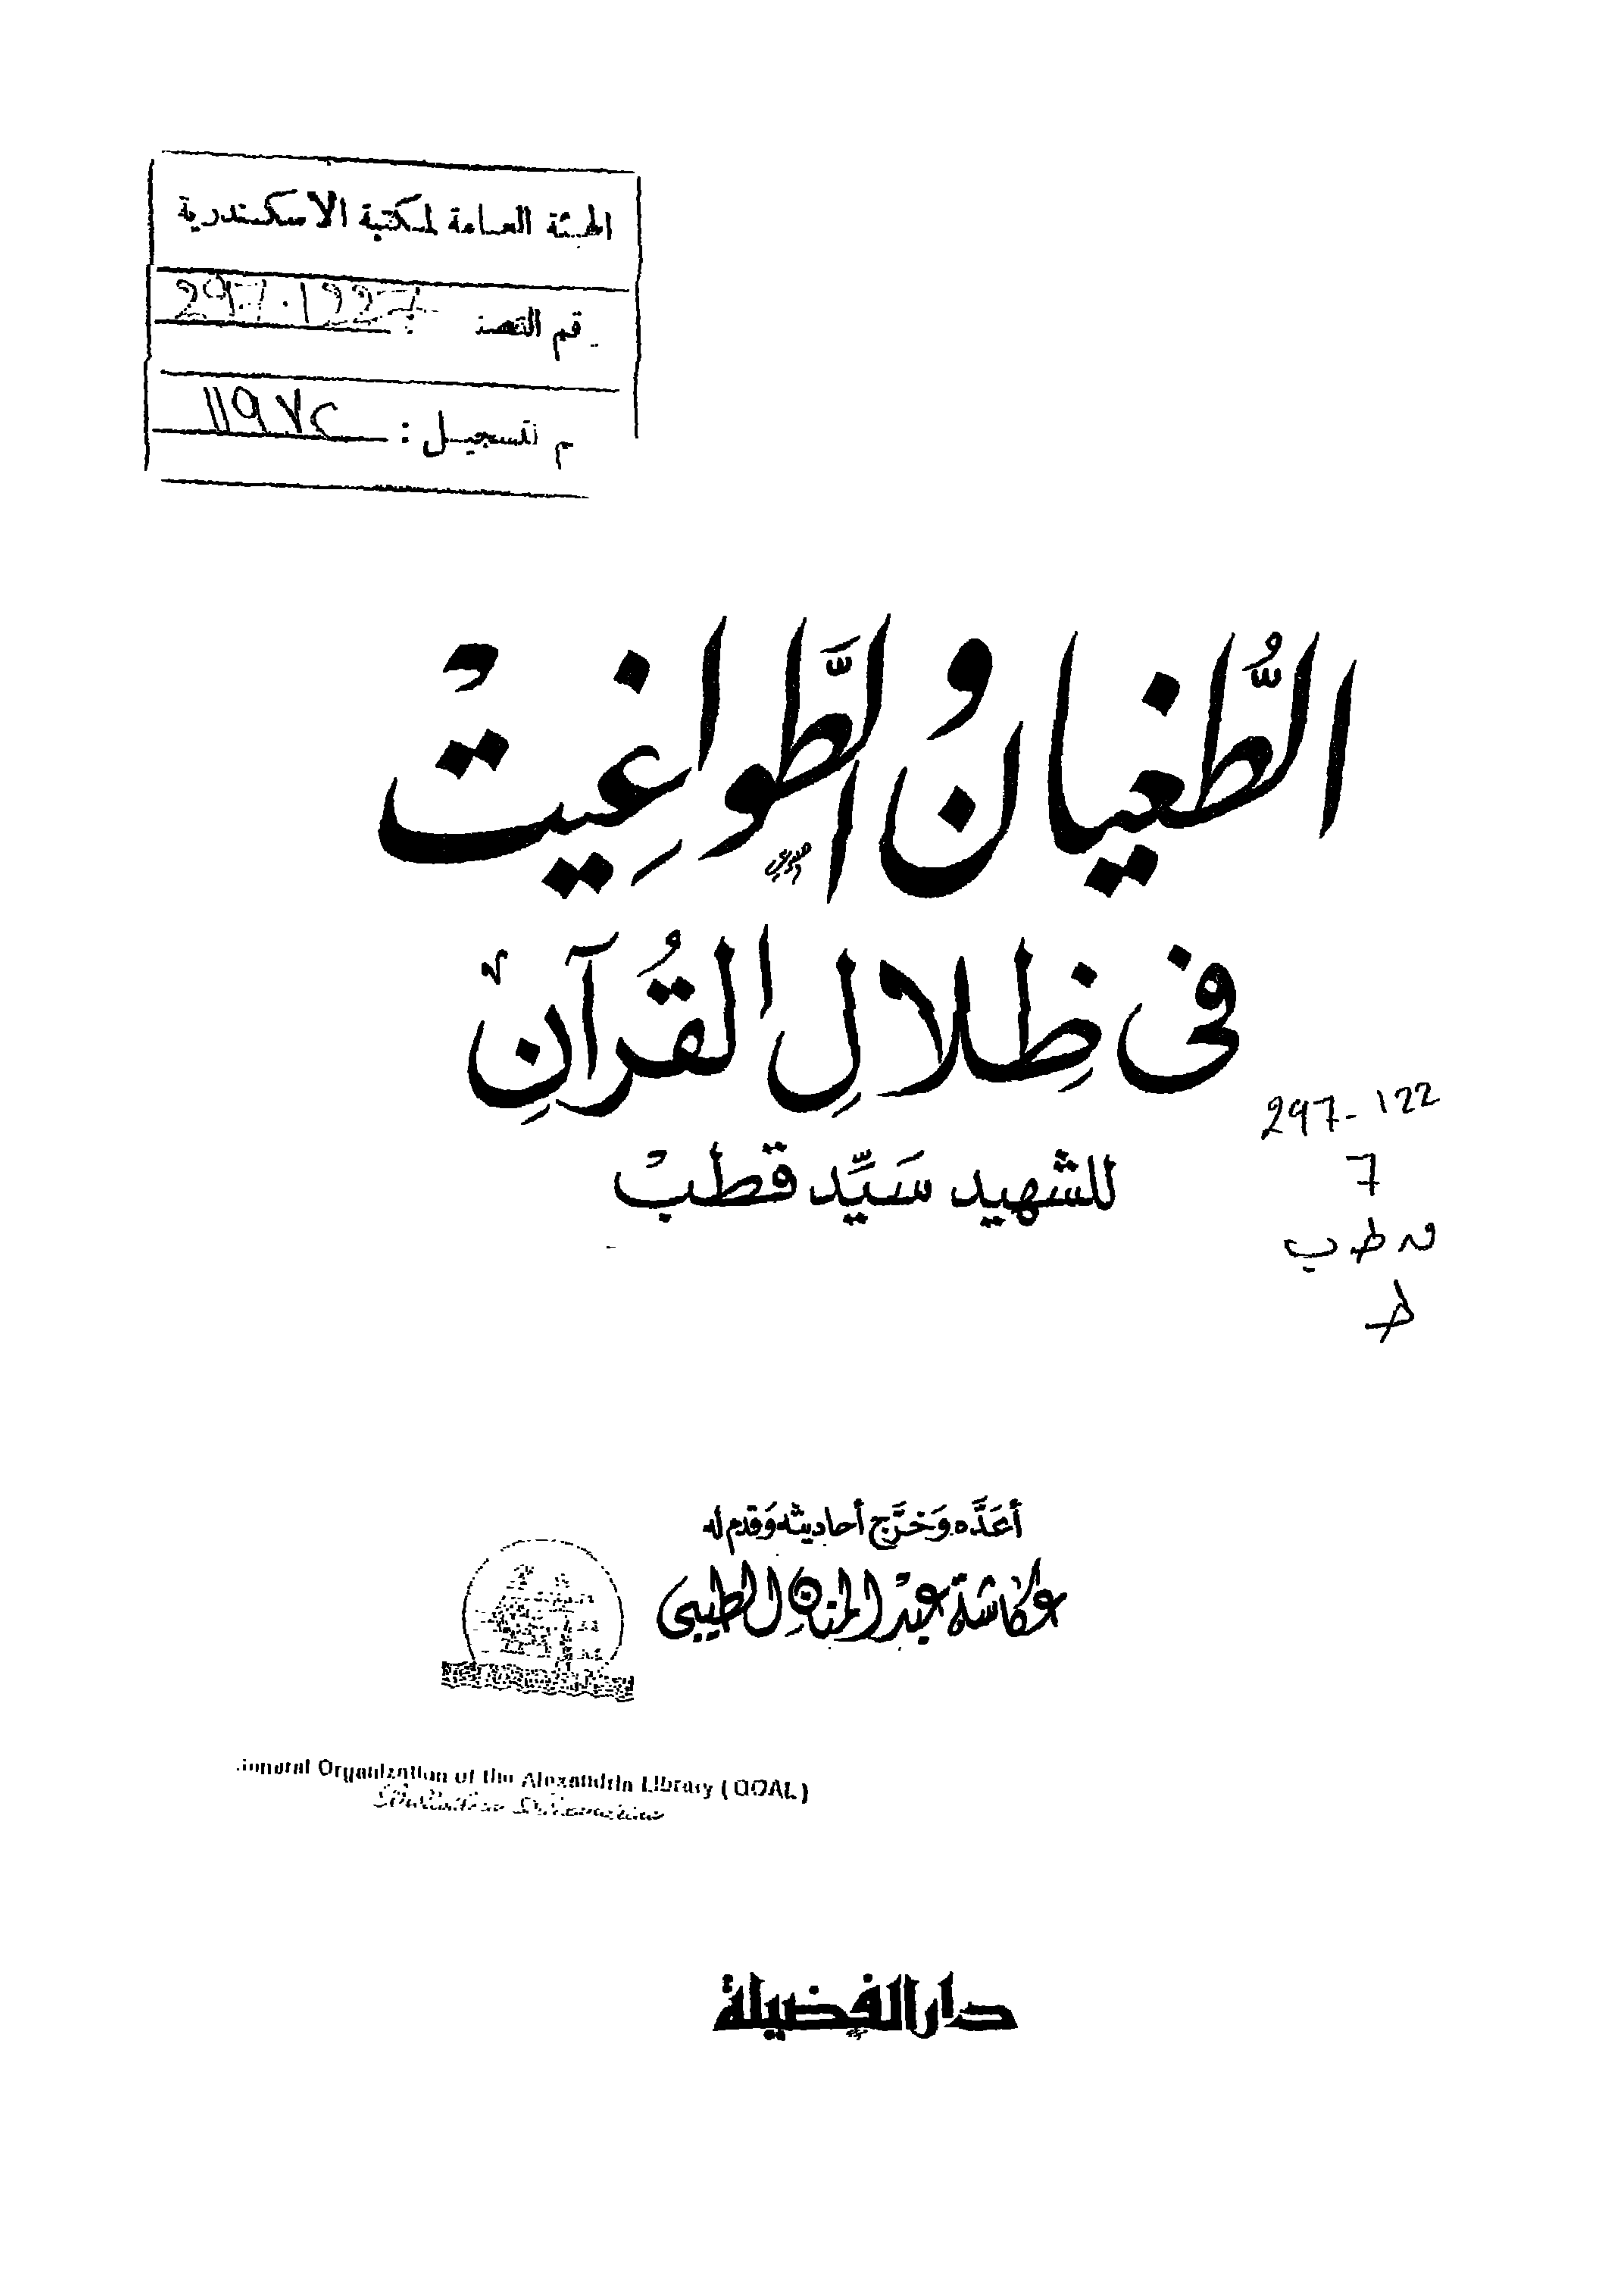 الهيئة العامة لمكتبة الاسكندرية
297.1227
قم التصن :
م لتسجيل : ١١٩٧٤
الطُّغيان والطَّواغِيتْ
فى ظِلالِ القُرآنِ
للشهيد سَيِّد قطبْ
297-122
7
ق ط ب
ط
أعَدَّه وَخرَّج أحاديثه وَقدم له
عكاشة عبد المنان الطيبى
General Organization of the Alexandria Library (GOAL)
Bibliotheca Alexandrina
دار الفضيلة